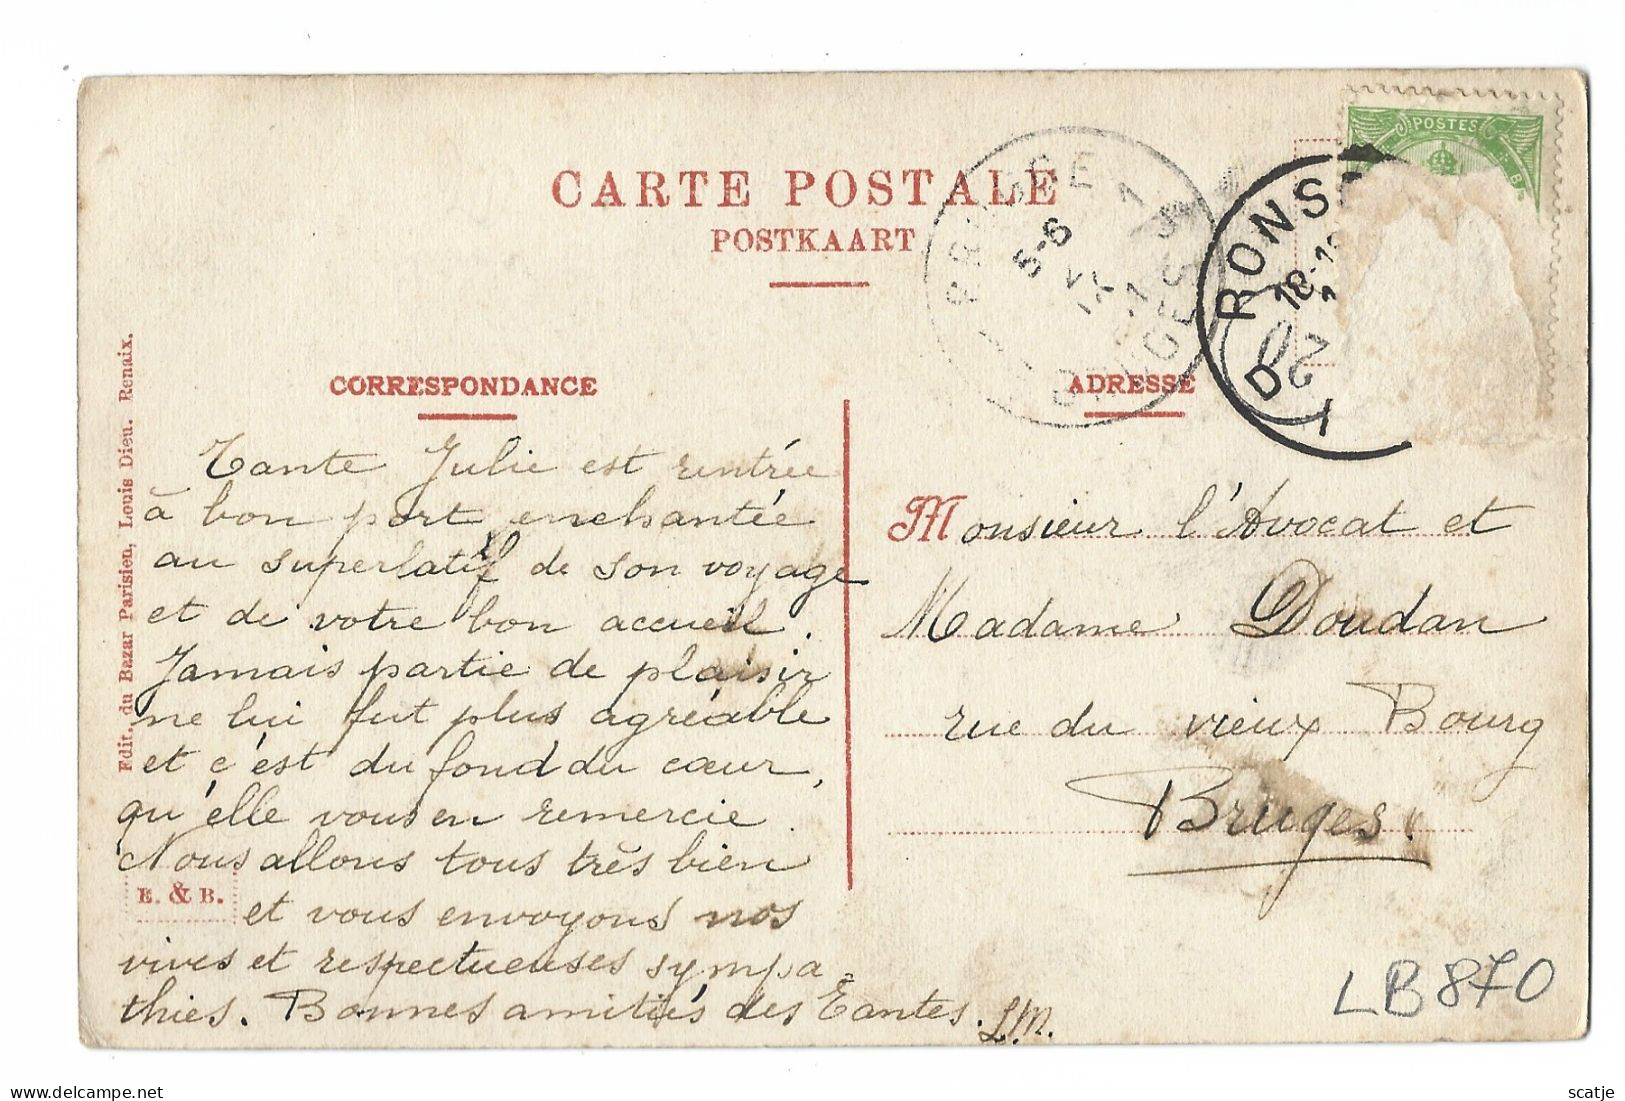 CARTE POSTALE
POSTKAART
POSTES
RONS
18-1
20
D
BRUGGE 1
5-6
IX
BRUGES
CORRESPONDANCE
ADRESSE
Tante Julie est rentrée
à bon port enchantée
au superlatif de son voyage
et de votre bon accueil.
Jamais partie de plaisir
ne lui fut plus agréable
et c'est du fond du cœur,
qu'elle vous en remercie.
Nous allons tous très bien
et vous envoyons nos
vives et respectueuses sympa=
thies. Bonnes amitiés des Tantes. L.M.
Monsieur l'Avocat et
Madame Doudan
rue du vieux Bourg
Bruges.
Edit. du Bazar Parisien, Louis Dieu. Renaix.
E. & B.
LB870
scatje